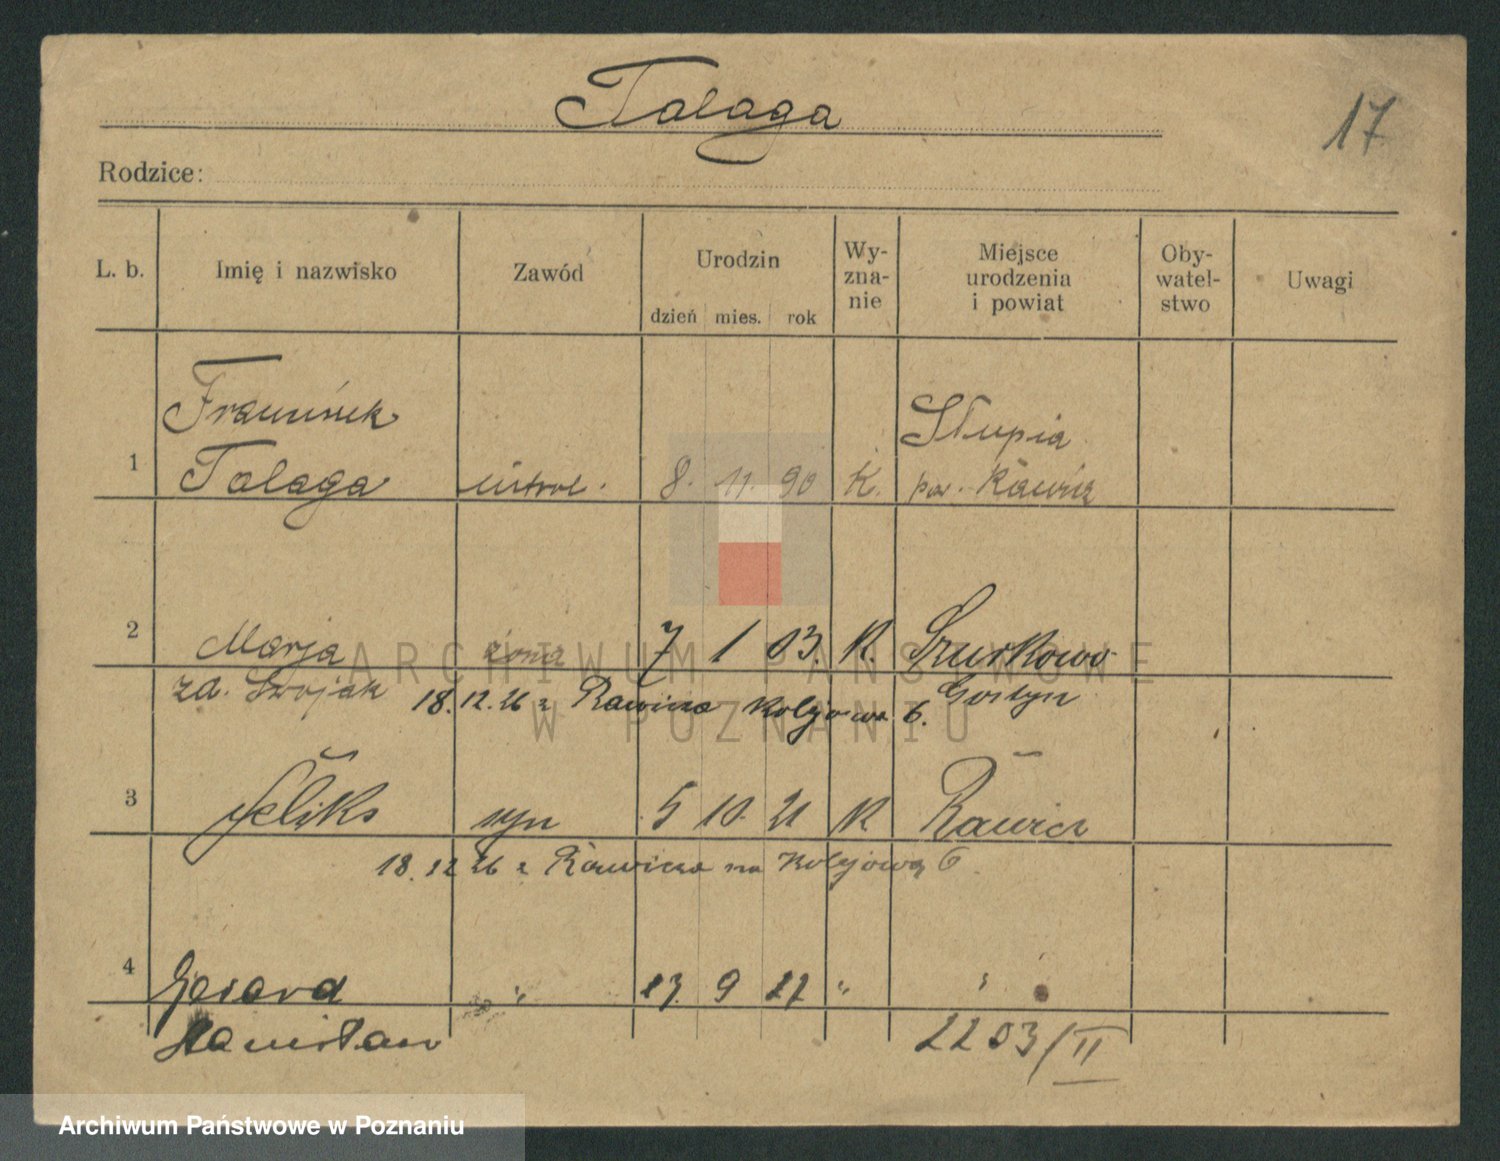 Talaga
17
Rodzice:
L. b. Imię i nazwisko Zawód Urodzin Wy-zna-nie Miejsce urodzenia i powiat Oby-watel-stwo Uwagi
dzień mies. rok
Franciszek Słupia
1 Talaga 8. 11. 90 K. pow. Rawicz
2 Marja żona 7 1 03. K. Szurkowo
zd. Gostyn
18.12.26 z Rawicza Kolejowa 6.
3 Feliks syn 5 10. 21 K Rawicz
18.12.26 z Rawicza na Kolejową 6
4 Gerard " 13. 9 27 " "
Stanisław
2203/II
ARCHIWUM PAŃSTWOWE
W POZNANIU
Archiwum Państwowe w Poznaniu